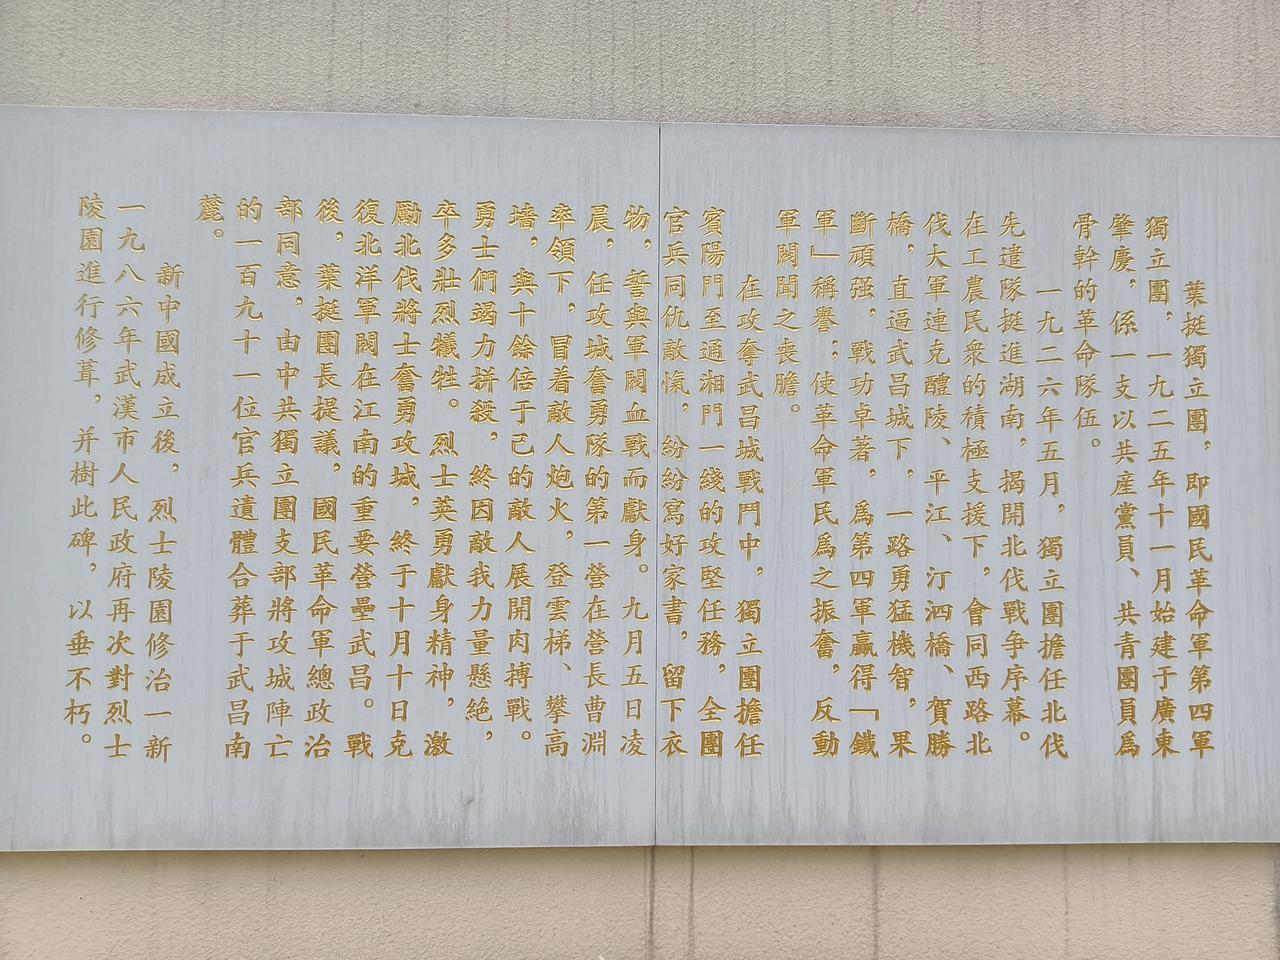 葉挺獨立團，即國民革命軍第四軍
獨立團，一九二五年十一月始建于廣東
肇慶，係一支以共産黨員、共青團員爲
骨幹的革命隊伍。
一九二六年五月，獨立團擔任北伐
先遣隊挺進湖南，揭開北伐戰争序幕。
在工農民衆的積極支援下，會同西路北
伐大軍連克醴陵、平江、汀泗橋、賀勝
橋，直逼武昌城下，一路勇猛機智，果
斷頑强，戰功卓著，爲第四軍贏得「鐵
軍」稱譽；使革命軍民爲之振奮，反動
軍閥聞之喪膽。
在攻奪武昌城戰鬥中，獨立團擔任
賓陽門至通湘門一綫的攻堅任務，全團
官兵同仇敵愾，紛紛寫好家書，留下衣
物，誓與軍閥血戰而獻身。九月五日凌
晨，任攻城奮勇隊的第一營在營長曹淵
率領下，冒着敵人炮火，登雲梯、攀高
墙，與十餘倍于己的敵人展開肉搏戰。
勇士們竭力拼殺，終因敵我力量懸絶，
卒多壯烈犧牲。烈士英勇獻身精神，激
勵北伐將士奮勇攻城，終于十月十日克
復北洋軍閥在江南的重要營壘武昌。戰
後，葉挺團長提議，國民革命軍總政治
部同意，由中共獨立團支部將攻城陣亡
的一百九十一位官兵遺體合葬于武昌南
麓。
新中國成立後，烈士陵園修治一新
一九八六年武漢市人民政府再次對烈士
陵園進行修葺，并樹此碑，以垂不朽。